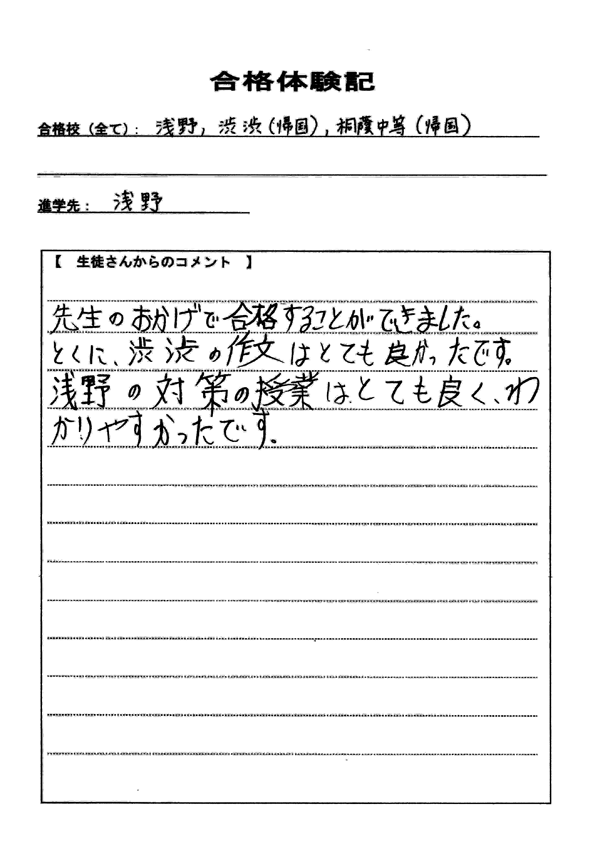 合格体験記
合格校（全て）： 浅野, 渋渋(帰国), 桐蔭中等(帰国)
進学先： 浅野
【 生徒さんからのコメント 】
先生のおかげで合格することができました。
とくに、渋渋の作文はとても良かったです。
浅野の対策の授業はとても良く、わ
かりやすかったです。